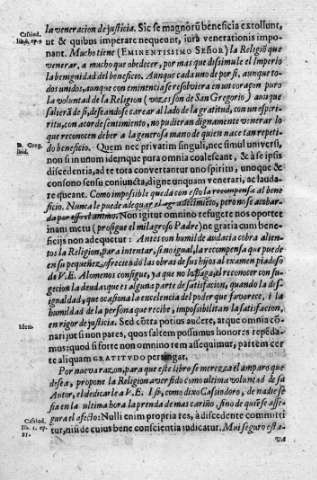 la veneracion de justicia. Sic se magnorũ beneficia extollunt,
ut & quibus imperare nequeunt, iura venerationis imponant.
Mucho tiene (EMINENTISSIMO SEÑOR) la Religiõ que
venerar, a mucho que obedecer, por mas que dissimule el Imperio
la benignidad del beneficio. Aunque cada uno de por si, aunque todos
unidos, aunque con eminencia se resolviera en un coraçon puro
la voluntad de la Religion (voz es son de San Gregorio) aunque
saliera de si, deseandose carear al lado de la gratitud, con un espiritu,
con acorde sentimiento, no pudieran dignamente venerar lo
que reconocen deber a la generosa mano de quien nace tan repetido
beneficio. Quem nec privatim singuli, nec simul universi,
non si in unum idemque pura omnia coalescant, & à se ipsis
discedentia, ad te tota convertantur uno spiritu, unoque &
consono sensu coniuncta, digne unquam venerari, ac laudare
queant. Como impossible queda con esto la recompensa al beneficio.
Nunca le puede adequar el agradecimiento, pero no se acobarda
por esso el animo. Non igitur omnino refugete nos oportet
inani metu (prosigue el milagroso Padre) ne gratia cum beneficijs
non adequetur: Antes con humilde audacia cobra alientos
la Religion, para intentar, si no igual, la recompensa que puede
en su pequeñez, ofreciẽdo las obras de sus hijos al examen piadoso
de V.E. Alomenos consigue, ya que no la paga, el reconocer con sugecion
la deuda, que es alguna parte de satisfacion, quando la desigualdad,
que ocasiona la excelencia del poder que favorece, i la
humildad de la persona que recibe, imposibilitan la satisfacion,
en rigor de justicia. Sed cõtra potius audere, atque omnia conari:
ut si non pares, quos saltem possumus honores rependamus:
quod si forte non omnino rem assequimur, partem certe
aliquam GRATITVDO pertingat.
Por nueva razon, para que este libro se merezca el amparo que
desea, propone la Religion aver sido como ultima voluntad de su
Autor, el dedicarle a V.E. I si, como dixo Casiodoro, de nadie se
fia en la ultima hora la prenda de mas cariño, sino de quiẽ se assegura
el afecto: Nulli enim propria res, à discedente committitur,
nisi de cuius bene conscientia iudicatur. Mui seguro esta-
va
Idem.